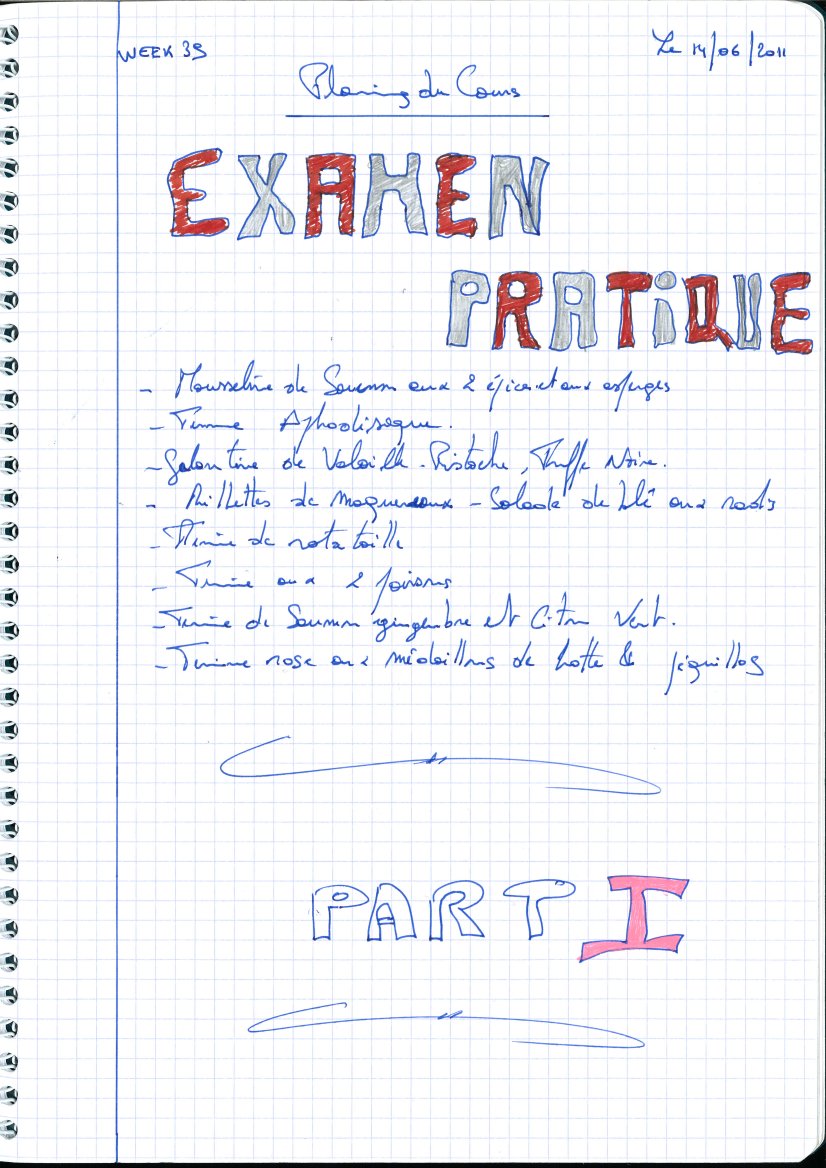 WEEK 39
Le 14/06/2011
Planing du Cours
EXAMEN
PRATIQUE
- Mousseline de Saumon aux 2 épices et aux asperges
- Terrine Aphrodisiaque.
- Galantine de Volaille - Pistache, Truffe Noire.
- Rillettes de maquereaux - Salade de blé aux radis
- Terrine de ratatouille
- Terrine aux 2 poissons
- Terrine de Saumon gingembre et Citron Vert.
- Terrine rose aux médaillons de lotte & piquillos
PART I